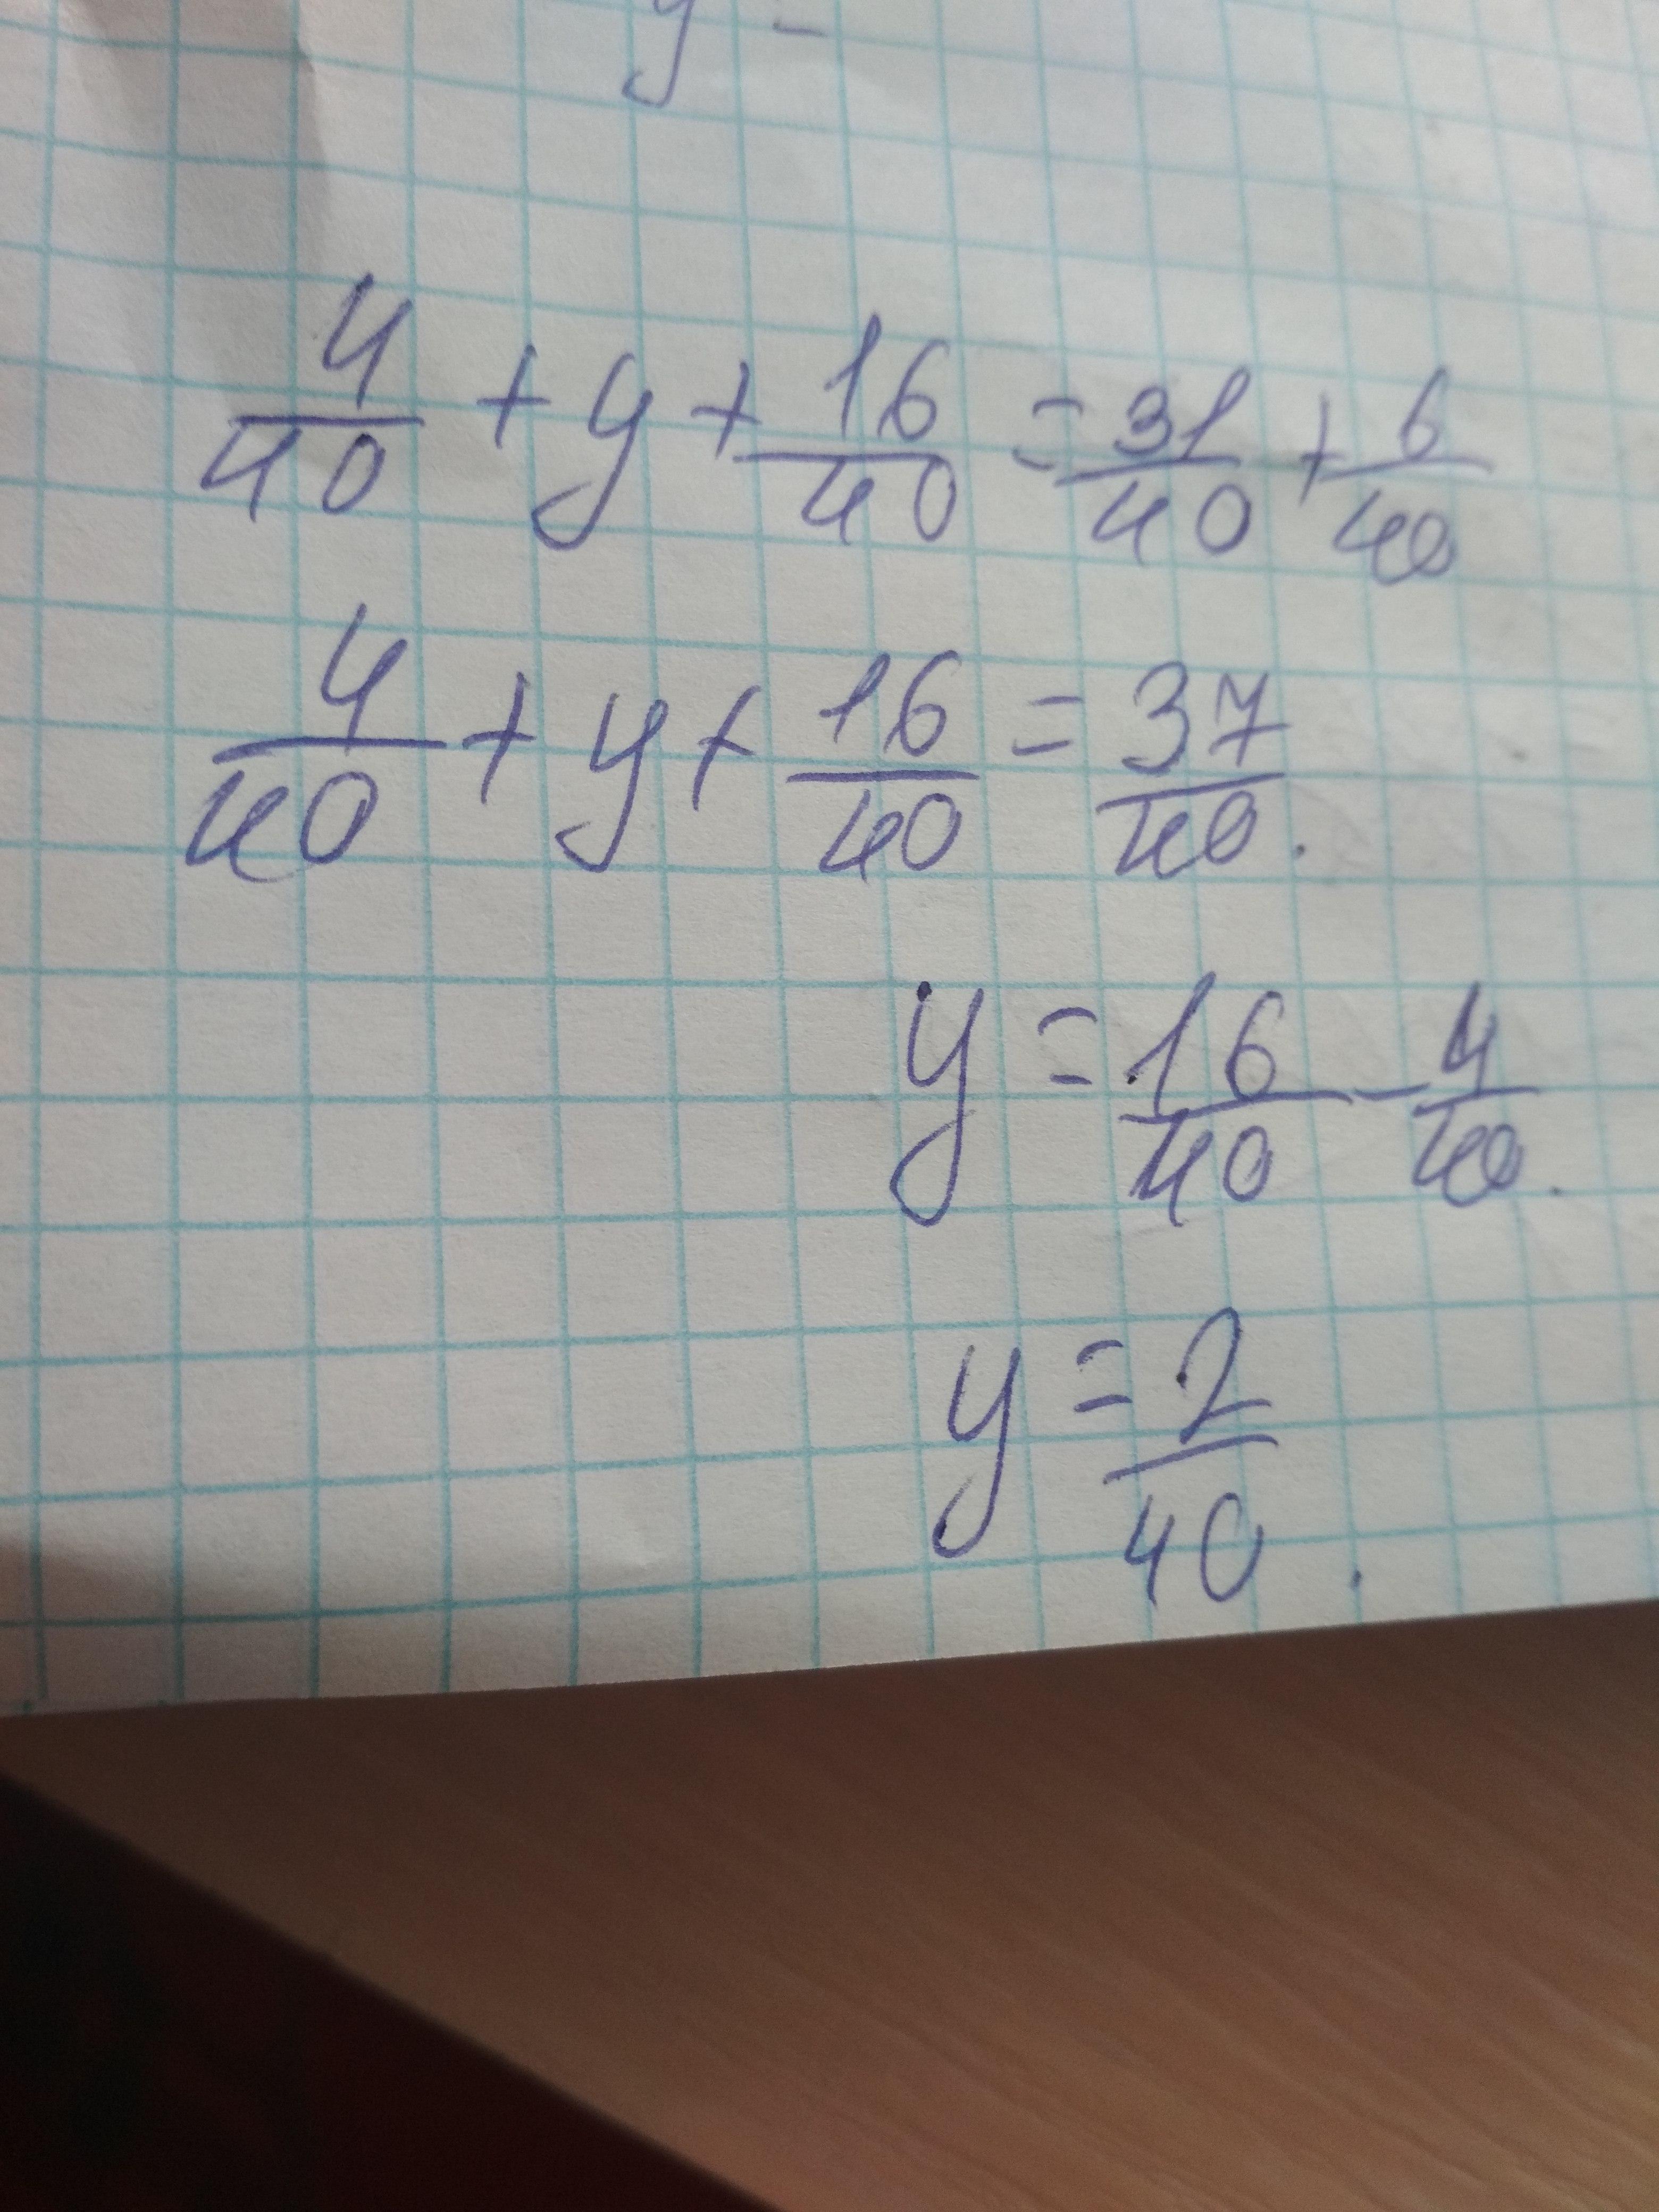 y =
4/40 + y + 16/40 = 31/40 + 6/40
4/40 + y + 16/40 = 37/40.
y = 16/40 - 4/40.
y = 2/40.